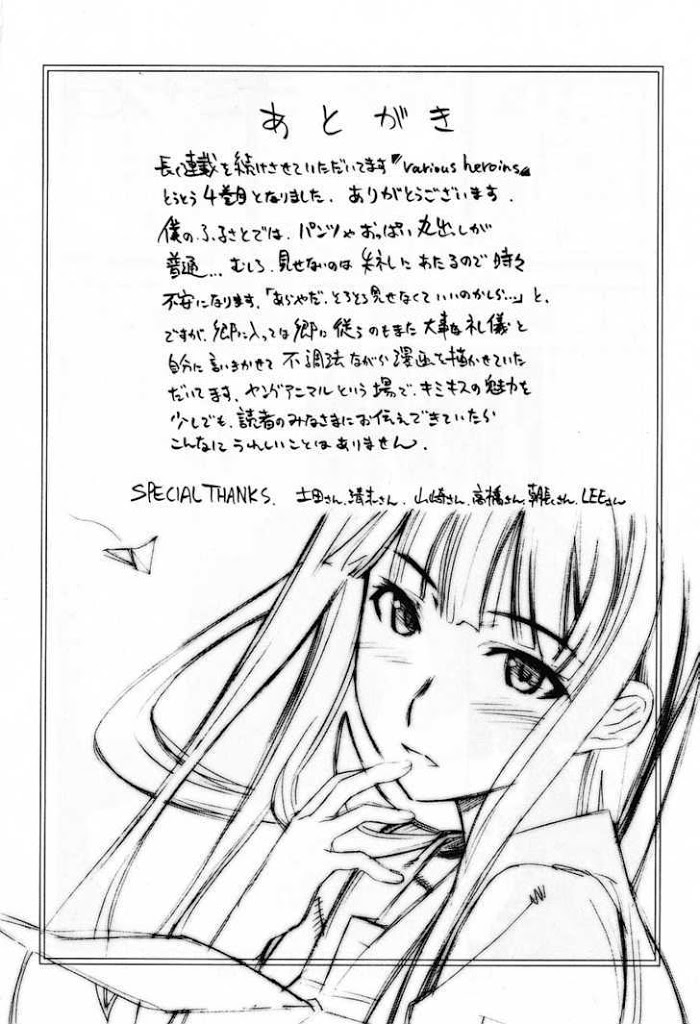 あとがき
長く連載を続けさせていただいてます『various heroins』
とうとう4巻目となりました。ありがとうございます。
僕のふるさとでは、パンツやおっぱい丸出しが
普通…むしろ、見せないのは失礼にあたるので時々
不安になります。「あらやだ、そろそろ見せなくていいのかしら…」と、
ですが、郷に入っては郷に従うのもまた大事な礼儀と
自分に言いきかせて不調法ながら漫画を描かせていた
だいてます。ヤングアニマルという場で、キミキスの魅力を
少しでも、読者のみなさまにお伝えできていたら
こんなにうれしいことはありません。
SPECIAL THANKS. 土田さん、さん、山崎さん、高橋さん、朝長さん、LEEさん